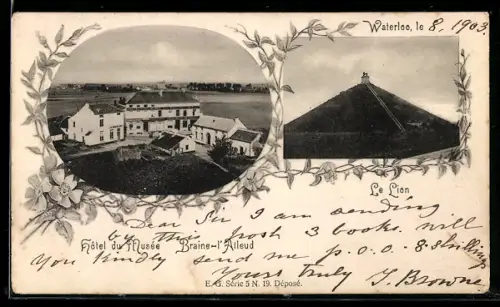 Waterloo, le 8, 1903
Le Lion
Dear Sir I am sending
Hôtel du Musée Braine-l'Alleud
by this post 3 books. will
You kindly send me p.o.o. 8 shillings
Yours truly J. Browne
E. G. Série 5 N. 19. Déposé.